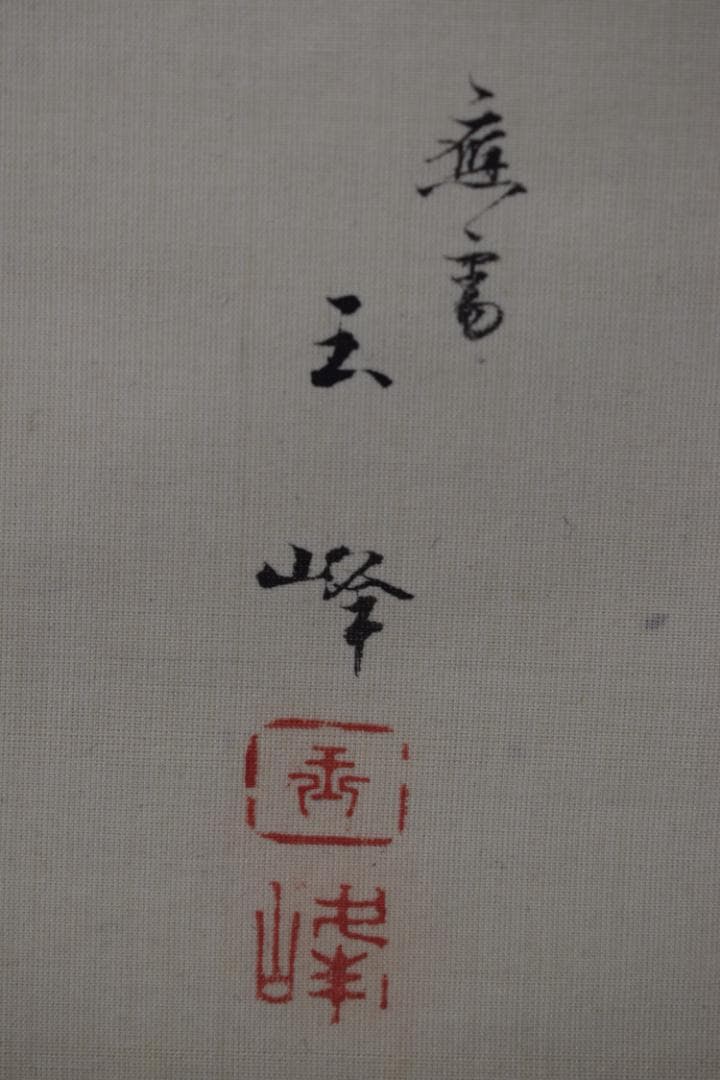 應需
玉峰
玉
峰